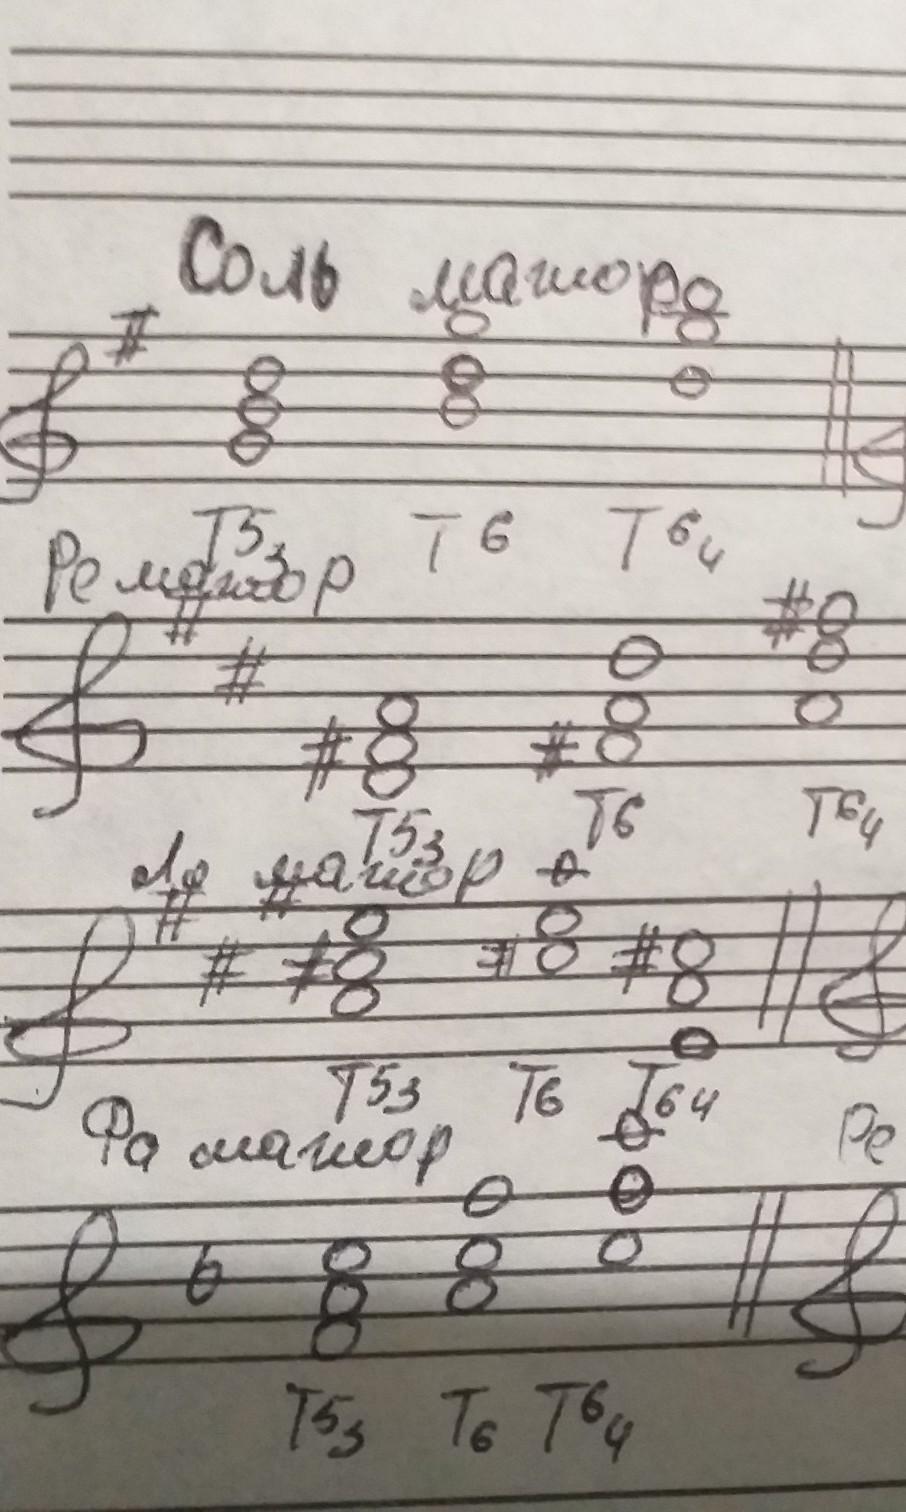 Соль мажор
T53 T6 T64
Ре мажор
T53 T6 T64
Ля мажор
T53 T6 T64
Фа мажор Ре
T53 T6 T64